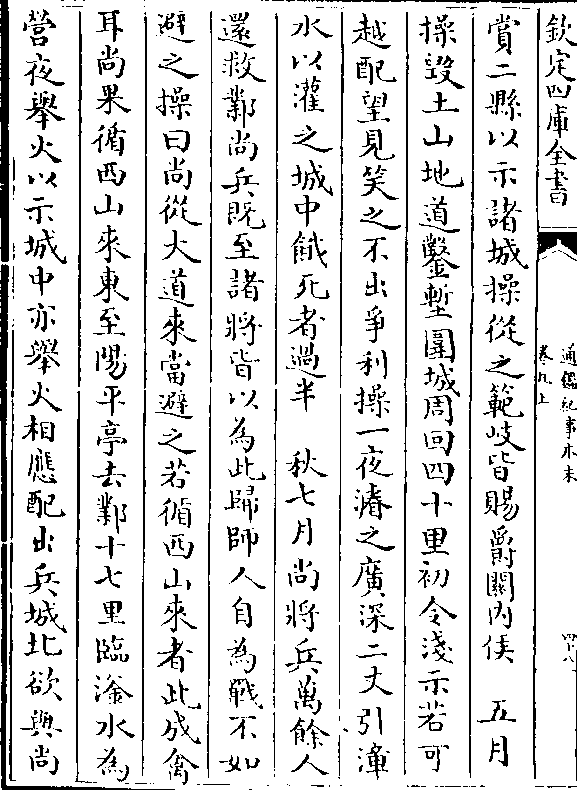 欽定四庫全書
通鑑紀事本末
卷九上
四十八
賞二縣以示諸城操從之範岐皆賜爵關內侯　五月
操毀土山地道鑿塹圍城周回四十里初令淺示若可
越配望見笑之不出爭利操一夜濬之廣深二丈引漳
水以灌之城中餓死者過半　秋七月尚將兵萬餘人
還救鄴尚兵既至諸將皆以為此歸師人自為戰不如
避之操曰尚從大道來當避之若循西山來者此成禽
耳尚果循西山來東至陽平亭去鄴十七里臨滏水為
營夜舉火以示城中城中亦舉火相應配出兵城北欲與尚